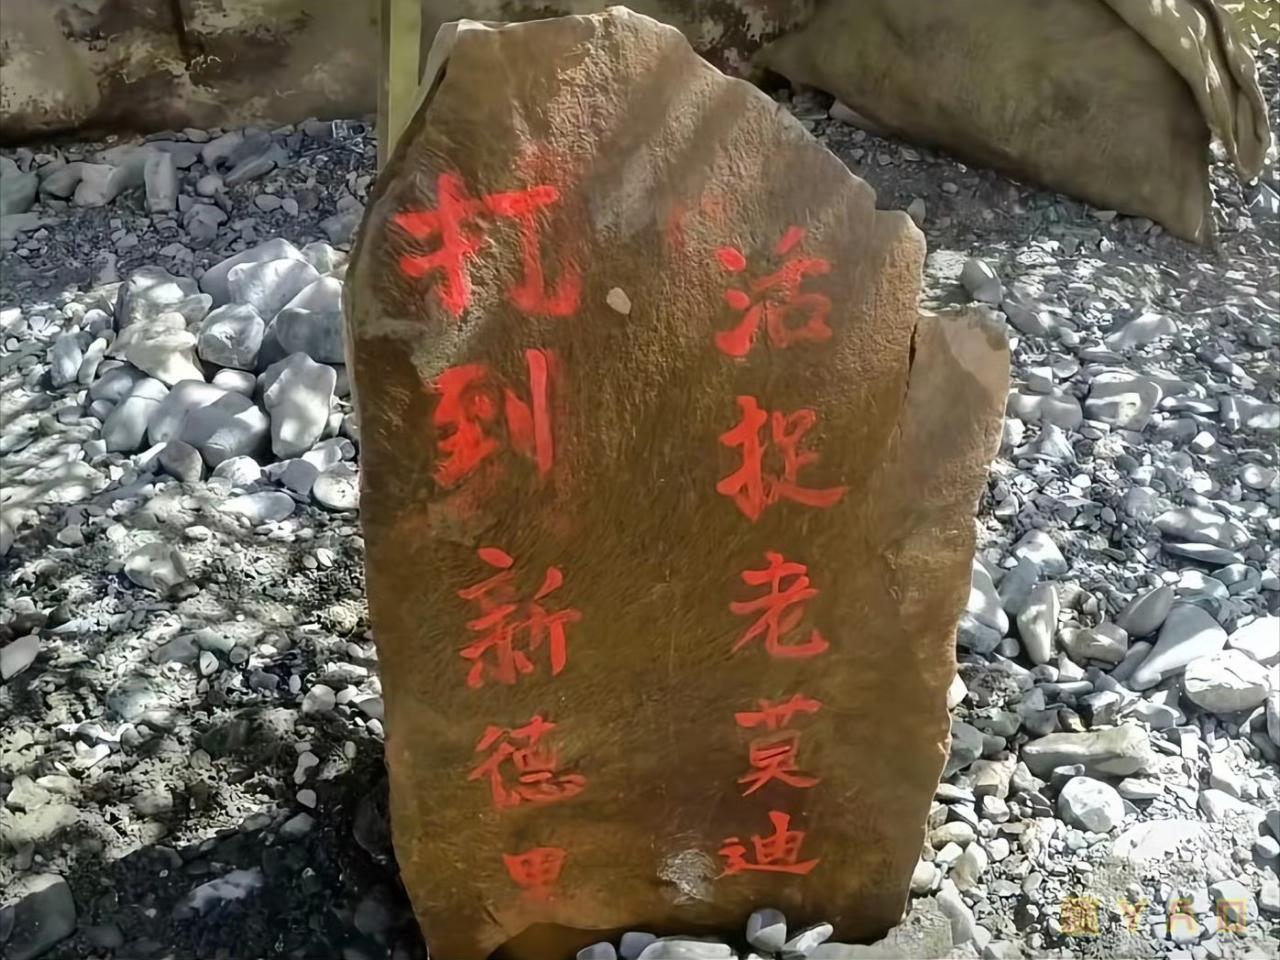 打到新德里
活捉老莫迪